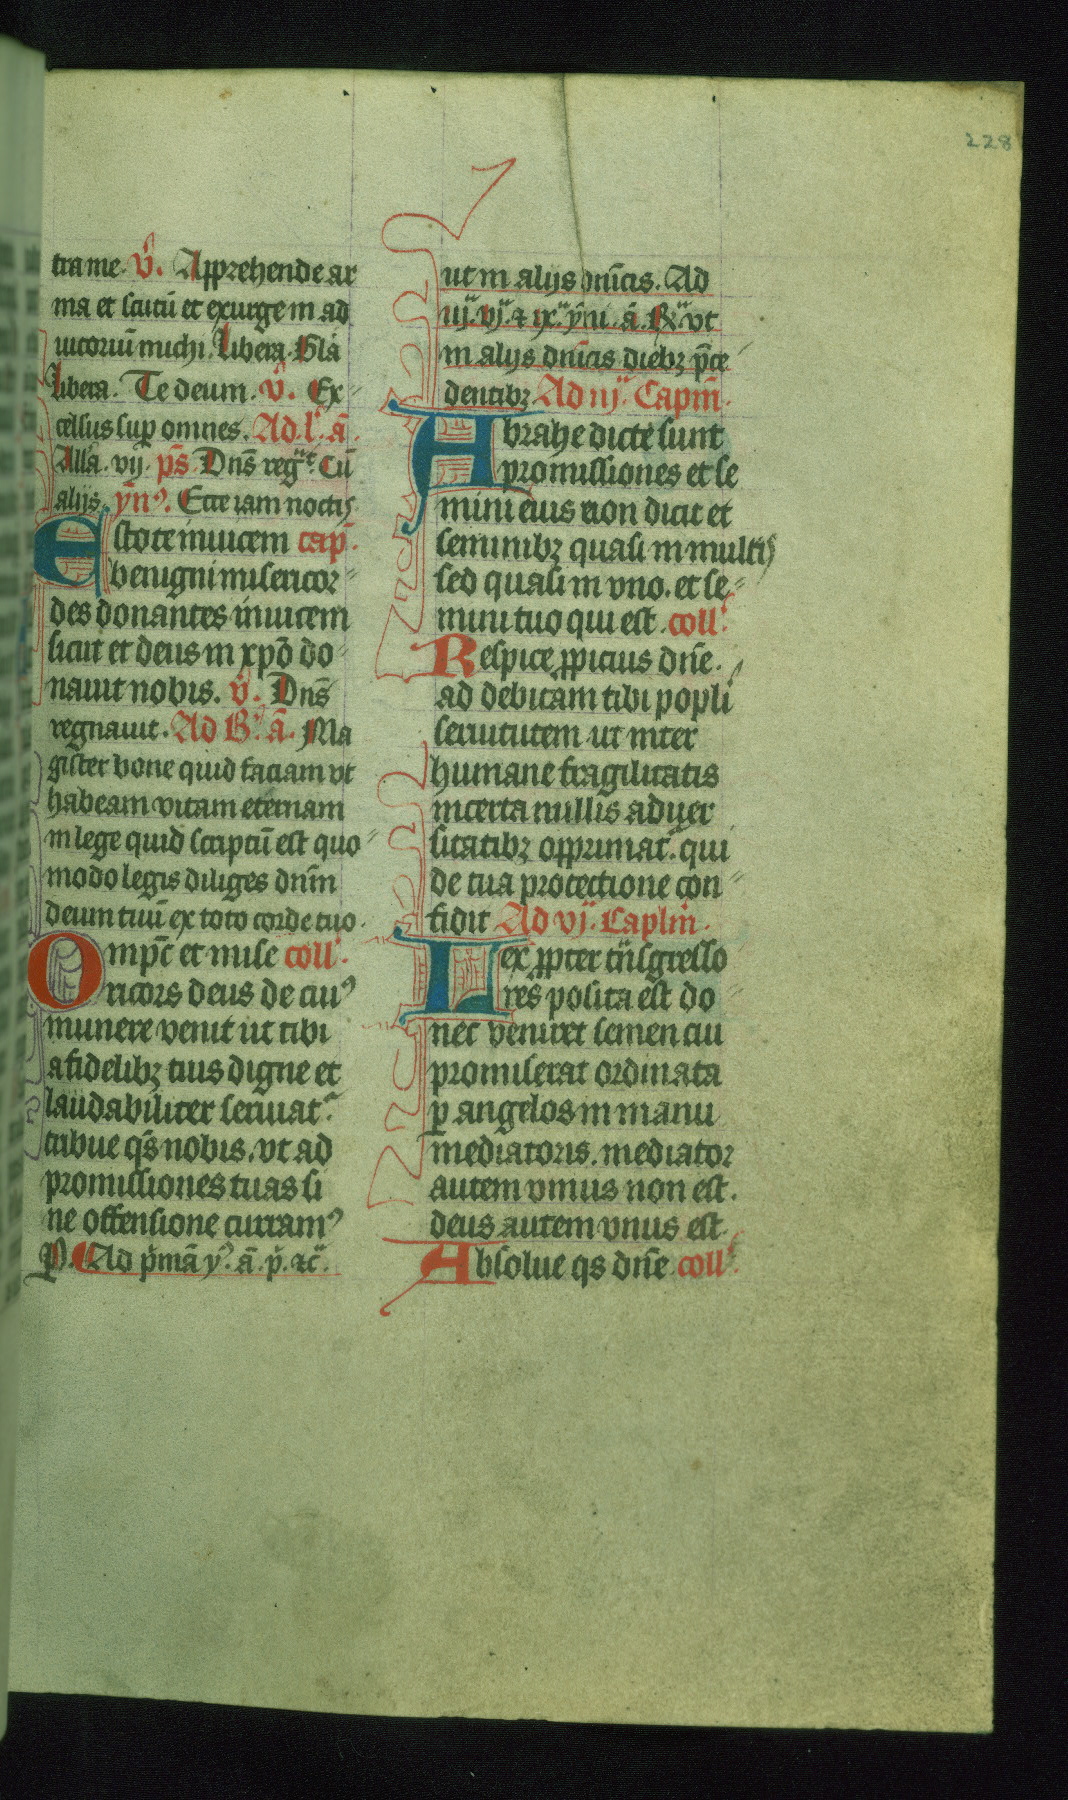 228
tra me. V̄. Apprehende ar
ma et scutū et exurge in ad
iutoriū michi. Libera. Gl̄a
Libera. Te deum. V̄. Ex-
celsus sup omnes. Ad. l'. ā.
All'a. vij. ps̄. Dn̄s reg. Cū
alijs. yn̄9. Ecce iam noctis
Estote inuicem cap̄.
benigni misericor-
des donantes inuicem
sicut et deus in xp̄o do-
nauit nobis. v̄. Dn̄s
regnauit. Ad B'. ā. Ma
gister bone quid faciam vt
habeam vitam eternam
in lege quid scriptū est quo-
modo legis diliges dn̄m
deum tuū ex toto corde tuo.
Omp̄c et mise coll'.
ricors deus de cui9
munere venit ut tibi
a fidelibꝫ tuis digne et
laudabiliter seruiat~
tribue qs̄ nobis. vt ad
promissiones tuas si
ne offensione curram9
P. Ad p̄mā y9. ā. p̄. ⁊c̄.
ut in alijs dn̄icis. Ad
iij. vj. ⁊ ix. yn̄ii. ā. R̄. vt
in alijs dn̄icis diebꝫ p̄ce-
dentibꝫ. Ad iij. Capm̄.
Abrahe dicte sunt
promissiones et se
mini eius non dicit et
seminibꝫ quasi in multis
sed quasi in vno. et se-
mini tuo qui est. coll'.
Respice ꝓpicius dn̄e.
ad debitam tibi popli
seruitutem ut inter
humane fragilitatis
incerta nullis aduer
sitatibꝫ opprimat~. qui
de tua protectione con-
fidit Ad vj. Caplm̄.
Lex ꝓpter tn̄sgresso
res posita est do-
nec veniret semen cui
promiserat ordinata
p angelos in manu
mediatoris. mediator
autem vnius non est.
deus autem vnus est.
Absolue qs dn̄e coll'.